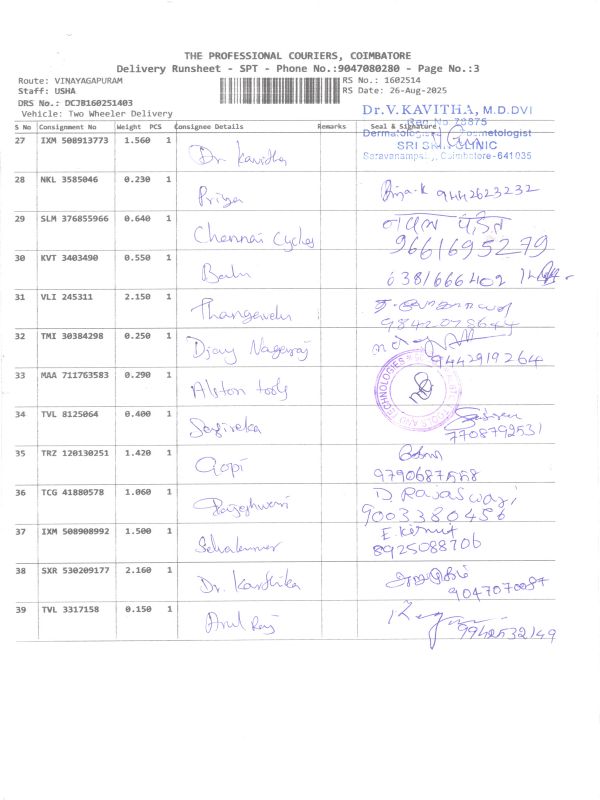 THE PROFESSIONAL COURIERS, COIMBATORE
Delivery Runsheet - SPT - Phone No.:9047080280 - Page No.:3
Route: VINAYAGAPURAM RS No.: 1602514
Staff: USHA RS Date: 26-Aug-2025
DRS No.: DCJB160251403
Vehicle: Two Wheeler Delivery
Dr.V.KAVITHA, M.D.DVL
Reg.No 76875
Dermatologist Cosmetologist
SRI SKIN CLINIC
Saravanampatti, Coimbatore-641035
S No Consignment No Weight PCS Consignee Details Remarks Seal & Signature
27 IXM 508913773 1.560 1 Dr. Kavitha
28 NKL 3585046 0.230 1 Priya Priya-K 9442623232
29 SLM 376855966 0.640 1 Chennai Cycles 9661695279
30 KVT 3403490 0.550 1 Balu 6381666402
31 VLI 245311 2.150 1 Thangavelu 9842078644
32 TMI 30384298 0.250 1 Nagaraj 9442919264
33 MAA 711763583 0.290 1 Alston tools TECHNOLOGIES
34 TVL 8125064 0.400 1 7708792531
35 TRZ 120130251 1.420 1 Gopi 9790687558
36 TCG 41880578 1.060 1 Rajeshwari D. Rajaswari 9003380456
37 IXM 508908992 1.500 1 Selvakumar 8925088706
38 SXR 530209177 2.160 1 Dr. Karthika 9047070087
39 TVL 3317158 0.150 1 Arul Raj 9942532149